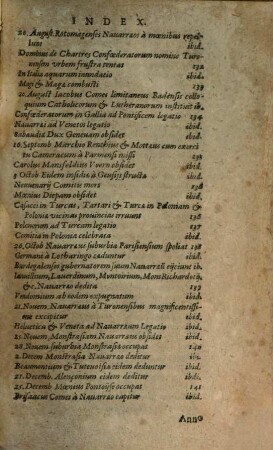 INDEX.
20. August. Rotomagenses Nauarræos à mœnibus repel-
lunt ibid.
Dombius de Chartres Confœderatorum nomine Turo-
nensium vrbem frustra tentat 132
In Italia aquarum inundatio ibid.
Magi & Maga combusti 133
21. August Iacobus Comes limitaneus Badensis collo-
quium Catholicorum & Lutheranorum instituit ib.
Confœderatorum in Gallia ad Pontificem legatio 134
Nauarræi ad Venetos legatio ibid.
Sabaudiæ Dux Geneuam obsidet ibid.
10. Septemb Marchio Renthius & Mottæus cum exerci-
tu Cameracum à Parmensi missi ibid.
Carolus Mansfeldius Voorn obsidet ibid.
3 Octob Eidem insidiæ à Gensis structæ ibid.
Neomarij Comitis mors ibid.
Mænius Diepam obsidet ibid.
Casacci in Turcas, Tartari & Turcæ in Poloniam &
Polonia vicinas prouincias irruunt 136
Polonorum ad Turcam legatio 138
Comitia in Polonia celebrata ibid.
20. Octob Nauarræus suburbia Parisiensium spoliat 138
Germani à Lotharingo cæduntur ibid.
Burdegalenses gubernatorem suum Nauarræū eijciunt ib.
Ianuillium, Lauerdinum, Montoirium, Mons Richardus,
&c. Nauarræo dedita 139
Vendomium ab eodem expugnatum ibid.
21. Nouem. Nauarræus à Turonensibus magnificentissi-
me excipitur ibid.
Heluetica & Veneta ad Nauarræum Legatio ibid.
25. Nouem, Monstrasiam Nauarræus obsidet ibid.
28. Nouem suburbia Monstrasia occupat 140
2. Decm Monstrasia Nauarræo deditur ibi.
Beaumontium & Tutouosia eidem deduntur ibid.
22. Decemb. Alençonium eidem deditur ibid.
25. Decemb Mænius Pontoyse occupat 141
Brisaacus Comes à Nauarræo capitur ibid.
Anno